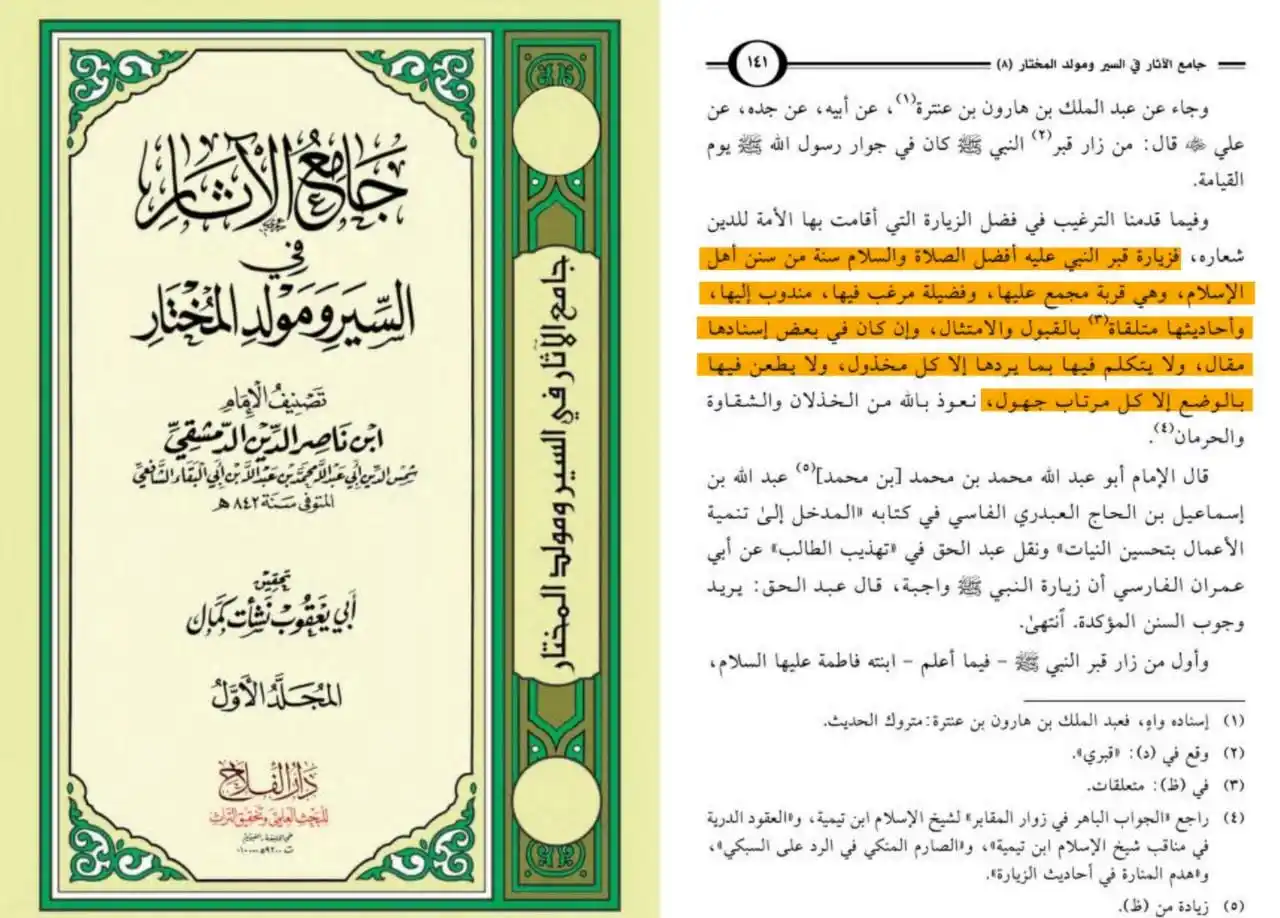 جامع الآثار
في
السير ومولد المختار
تصنيف الإمام
ابن ناصر الدين الدمشقي
شمس الدين أبي عبد الله محمد بن عبد الله بن أبي البقاء الشافعي
المتوفى سنة ٨٤٢ هـ
تحقيق
أبي يعقوب نشأت كمال
المجلد الأول
دار الفلاح
للبحث العلمي وتحقيق التراث
جامع الآثار في السير ومولد المختار
جامع الآثار في السير ومولد المختار (٨)
١٤١
وجاء عن عبد الملك بن هارون بن عنترة(١)، عن أبيه، عن جده، عن
علي رضي الله عنه قال: من زار قبر(٢) النبي ﷺ كان في جوار رسول الله ﷺ يوم
القيامة.
وفيما قدمنا الترغيب في فضل الزيارة التي أقامت بها الأمة للدين
شعاره، فزيارة قبر النبي عليه أفضل الصلاة والسلام سنة من سنن أهل
الإسلام، وهي قربة مجمع عليها، وفضيلة مرغب فيها، مندوب إليها،
وأحاديثها متلقاة(٣) بالقبول والامتثال، وإن كان في بعض إسنادها
مقال، ولا يتكلم فيها بما يردها إلا كل مخذول، ولا يطعن فيها
بالوضع إلا كل مرتاب جهول، نعوذ بالله من الخذلان والشقاوة
والحرمان(٤).
قال الإمام أبو عبد الله محمد بن محمد [بن محمد](٥) عبد الله بن
إسماعيل بن الحاج العبدري الفاسي في كتابه «المدخل إلىٰ تنمية
الأعمال بتحسين النيات» ونقل عبد الحق في «تهذيب الطالب» عن أبي
عمران الفارسي أن زيارة النبي ﷺ واجبة، قال عبد الحق: يريد
وجوب السنن المؤكدة. ٱنتهىٰ.
وأول من زار قبر النبي ﷺ - فيما أعلم - ابنته فاطمة عليها السلام،
(١) إسناده واهٍ، فعبد الملك بن هارون بن عنترة: متروك الحديث.
(٢) وقع في (د): «قبري».
(٣) في (ظ): متعلقات.
(٤) راجع «الجواب الباهر في زوار المقابر» لشيخ الإسلام ابن تيمية، و«العقود الدرية
في مناقب شيخ الإسلام ابن تيمية»، و«الصارم المنكي في الرد على السبكي»،
و«هدم المنارة في أحاديث الزيارة».
(٥) زيادة من (ظ).